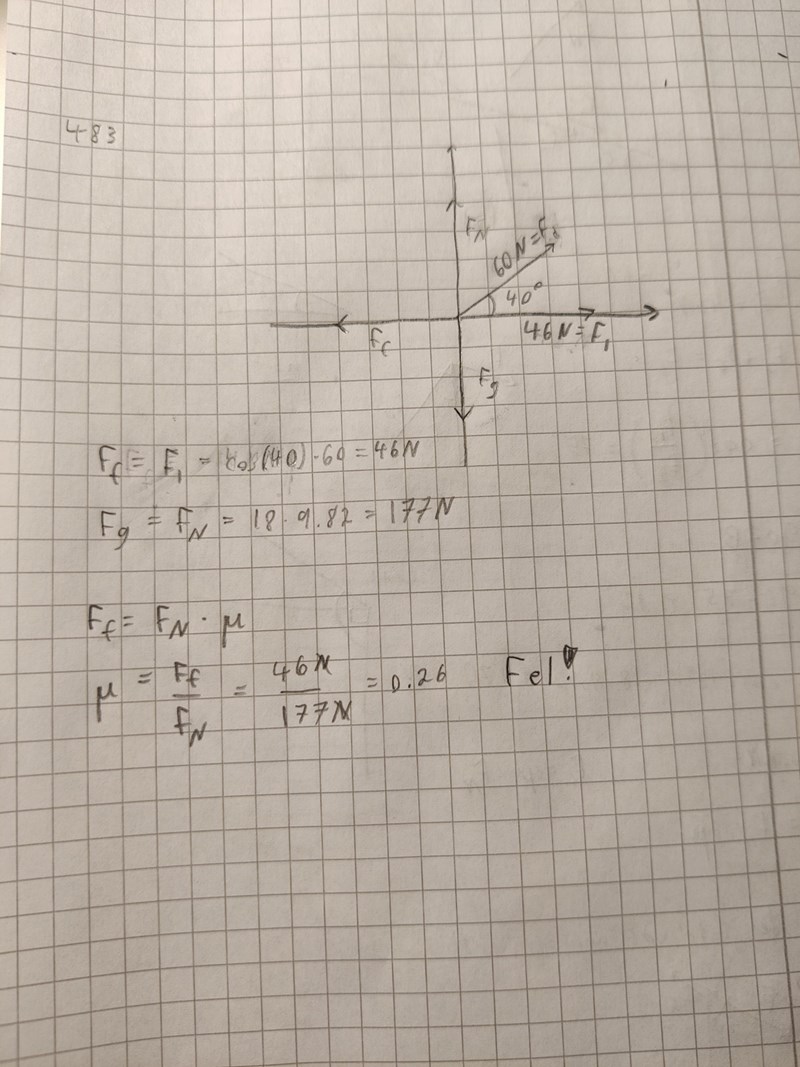 4-83
F_N
60N=F_2
40°
F_f
46N=F_1
F_g
F_f = F_1 = cos(40)·60=46N
F_g = F_N = 18·9.82=177N
F_f = F_N · μ
μ = F_f / F_N = 46N / 177N = 0.26 Fel!